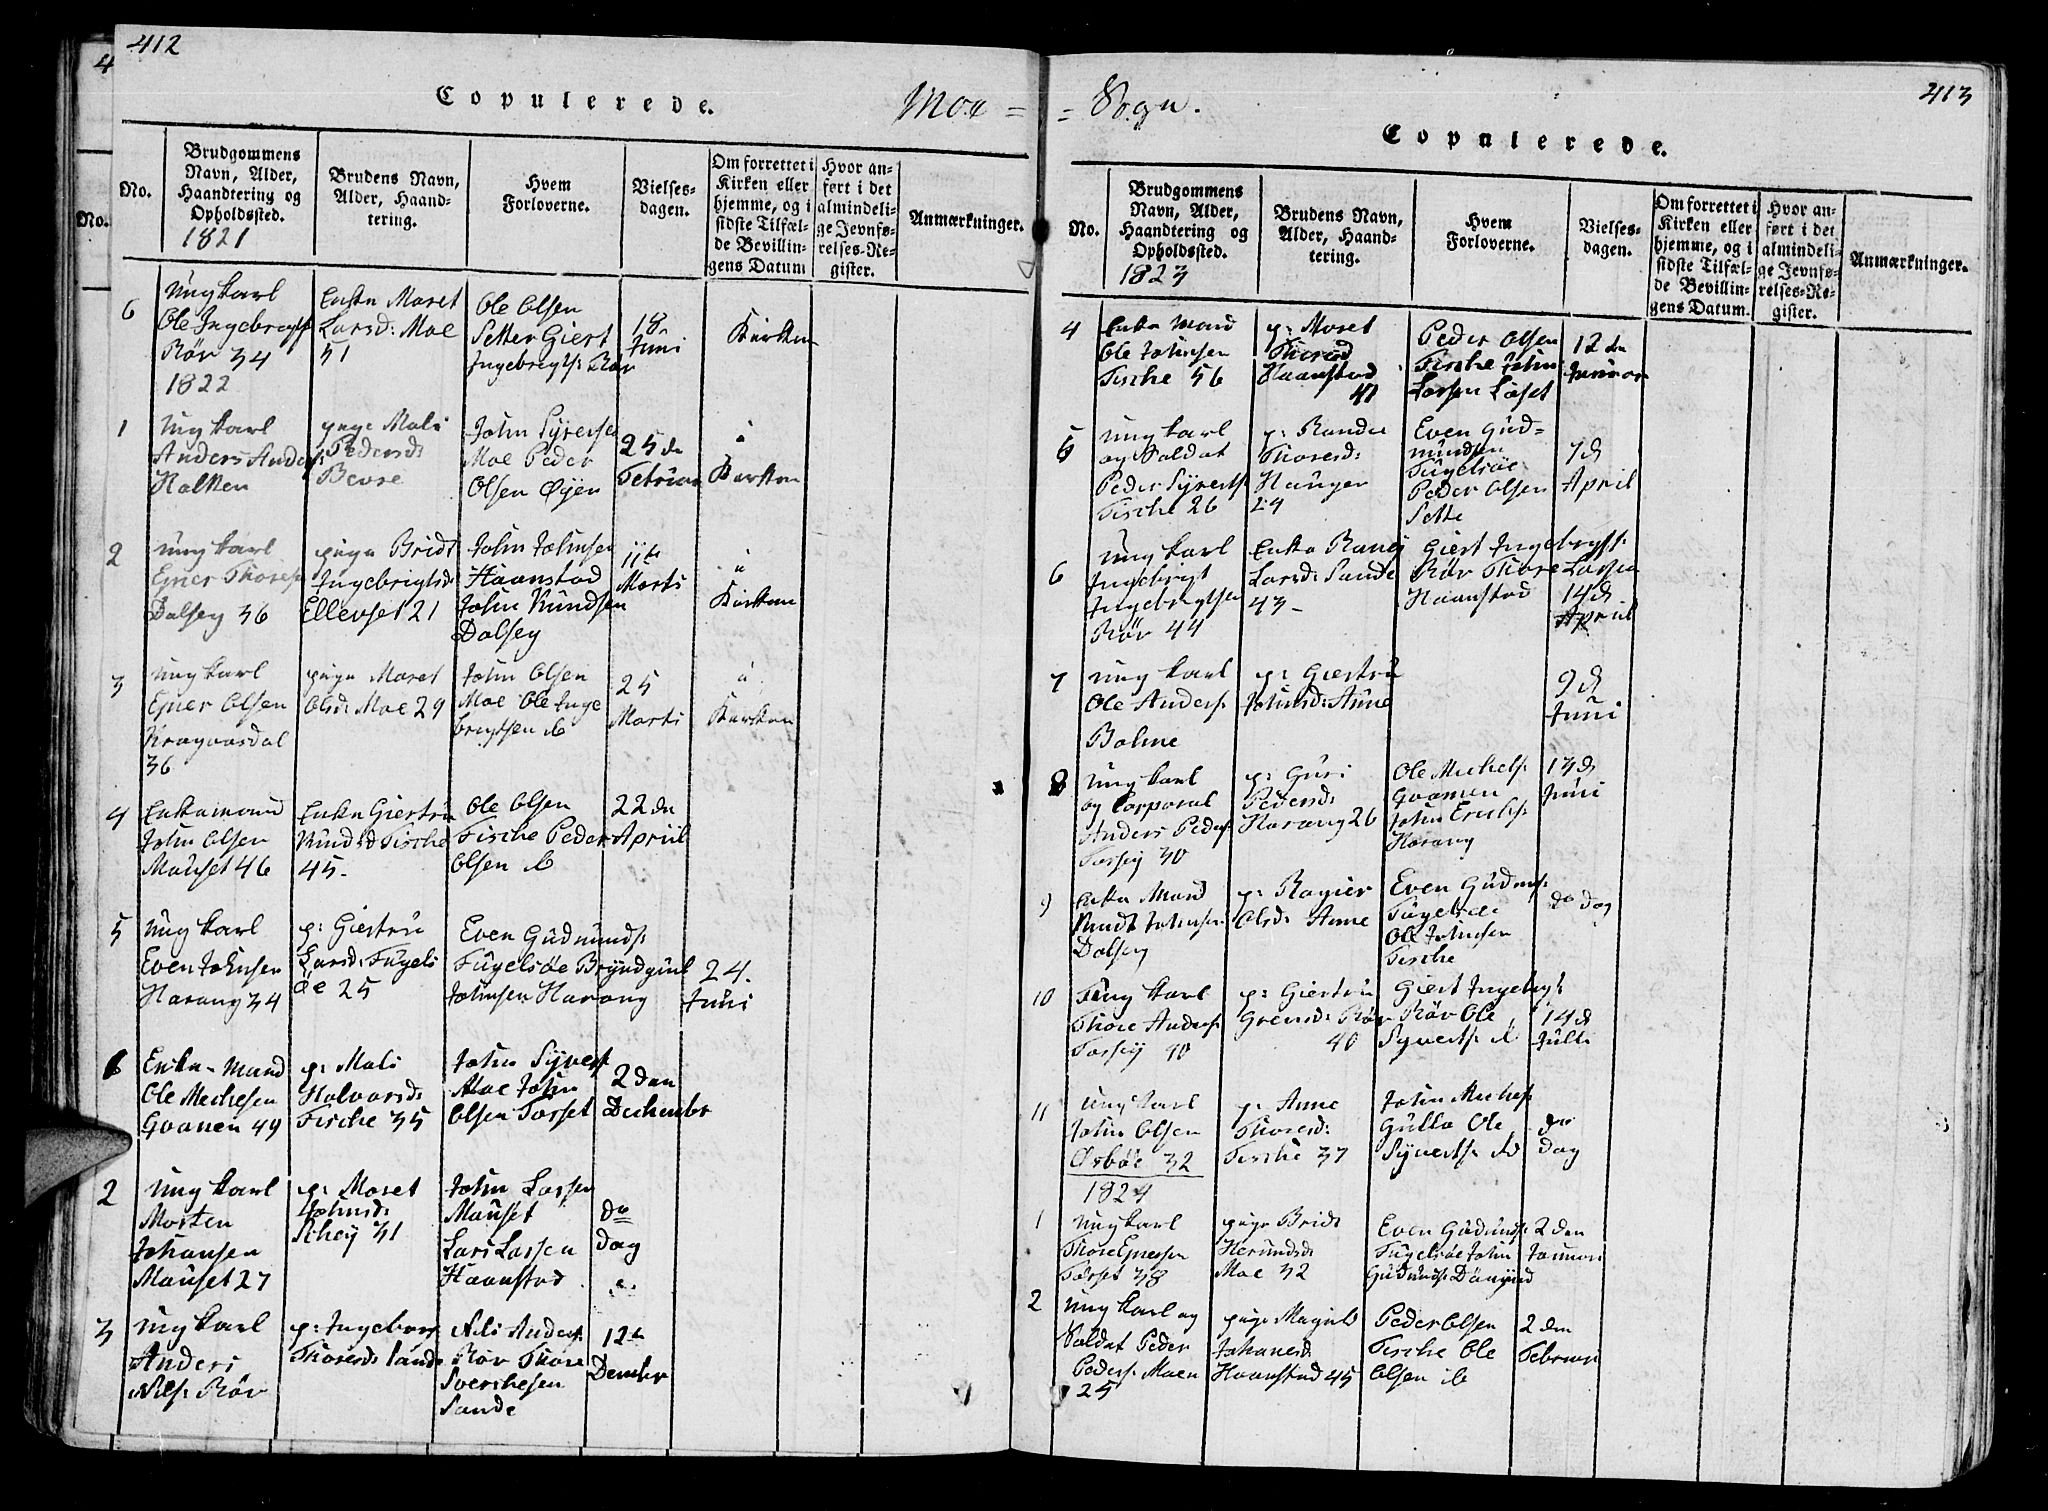 412
Copulerede.
Moe =
No.
Brudgommens
Navn, Alder,
Haandtering og
Opholdssted.
1821
Brudens Navn,
Alder, Haand-
tering.
Hvem
Forloverne.
Vielses-
dagen.
Om forrettet i
Kirken eller
hjemme, og i
sidste Tilfæl-
de Bevillin-
gens Datum
Hvor an-
ført i det
almindeli-
ge Jevnfø-
relses-Re-
gister.
Anmærkninger.
6
Ung karl
Ole Ingebrigts
Röv 34
1822
Enke Maret
Larsd: Moe
51
Ole Olsen
Setter Giert
Ingebregts: Röv
18
Juni
Kirken
1
Ung karl
Anders Anders:
Halken
pige Mali
Pedersd
Bevre
John Syversen
Moe Peder
Olsen Øyen
25 de
Februar
i
Kirken
2
Ung karl
Ejner Thores:
Dalsey 36
pige Bridt
Ingebrigtsd:
Ellevset 21
John Johnsen
Haanstad
John Knudsen
Dalsey
11te
Marts
i
Kirken
3
Ung karl
Ejner Olsen
Kragvasdal
36
pige Maret
Olsd: Moe 29
John Olsen
Moe Ole Inge
brigtsen ib
25
Marts
i
Kirken
4
Enkemand
John Olsen
Mauset 46
Enke Giertru
Knudsd Fiske
45.
Ole Olsen
Fiske Peder
Olsen ib
22 de
April
5
Ung karl
Even Johnsen
Harang 34
p: Giertru
Larsd: Fugels
öe 25
Even Gudmunds:
Fugelsöe Bryndgiul
Johnsen Harang
24.
Juni
6
Enke-mand
Ole Mechelsen
Gvanen 49
p: Mali
Halvorsd:
Fiske 35
John Syverts
Moe John
Olsen Torset
2 den
Dechember
2
Ung karl
Morten
Johansen
Mauset 27
p: Maret
Johnsd:
Schey 31
John Larsen
Mauset
Lars Larsen
Haanstad
do
Dag
3
Ung karl
Anders
Nils: Röv
p: Ingebor
Thoresd: Sande
Nils Anders:
Röv Thore
Sverchesen
Sande
12te
Decmbr
= Sogn.
413
Copulerede.
No.
Brudgommens
Navn, Alder,
Haandtering og
Opholdssted.
1823
Brudens Navn,
Alder, Haand-
tering.
Hvem
Forloverne.
Vielses-
dagen.
Om forrettet i
Kirken eller
hjemme, og i
sidste Tilfæl-
de Bevillin-
gens Datum.
Hvor an-
ført i det
almindeli-
ge Jevnfø-
relses-Re-
gister.
Anmærkninger.
4
Enke mand
Ole Johnsen
Fiske 56
p: Maret
Thoresd
Haanstad
41
Peder Olsen
Fiske John
Larsen Löset
12 de
Januar
5
Ung karl
og Soldat
Peder Syverts:
Fiske 26
p: Randie
Thoresd:
Hauger
24
Even Gud=
mundsen
Fugelsöe
Peder Olsen
Sette
7 d
April
6
Ung karl
Ingebrigt
Ingebrigtsen
Röv 44
Enke Randi
Larsd: Sande
43-
Giert Ingebrigts:
Röv Thore Larsen
Haanstad
14 d
April
7
Ung karl
Ole Anders:
Bolme
p: Giertru
Johnsd: Aune
9 d
Juni
8
Ung karl
og Corporal
Anders Peders:
Torsey 30
p: Guri
Pedersd:
Harang 26
Ole Michels:
Gvanen
John Erichs:
Harang
13 d
Juni
9
Enke Mand
Knudt Johnsen
Dalsey
p: Ragier
Olsd: Aune
Even Gudms:
Fugelsöe
Ole Johnsen
Fiske
do Dag
10
Ung karl
Thore Anders:
Torsey 40
p: Giertru
Grensd: Röv
40
Giert Ingebrigts
Röv Ole
Syverts: ib
14 d
Julli
11
Ung karl
John Olsen
Osböe 32
p: Anne
Thoresd:
Fiske 37
John Michels:
Gulla Ole
Syverts: ib
do
Dag
1824
1
Ung karl
Thore Ejnersen
Torset 38
pige Bridt
Hermundsd:
Moe 32
Even Gudmunds:
Fugelsöe John
Gudmunds: Dönnem
2 den
Januari
2
Ung karl og
Soldat Peder
Peders: Moen
25
pige Magnild
Johanesd:
Haanstad 45
Peder Olsen
Fiske Ole
Olsen ib
2 den
Februari